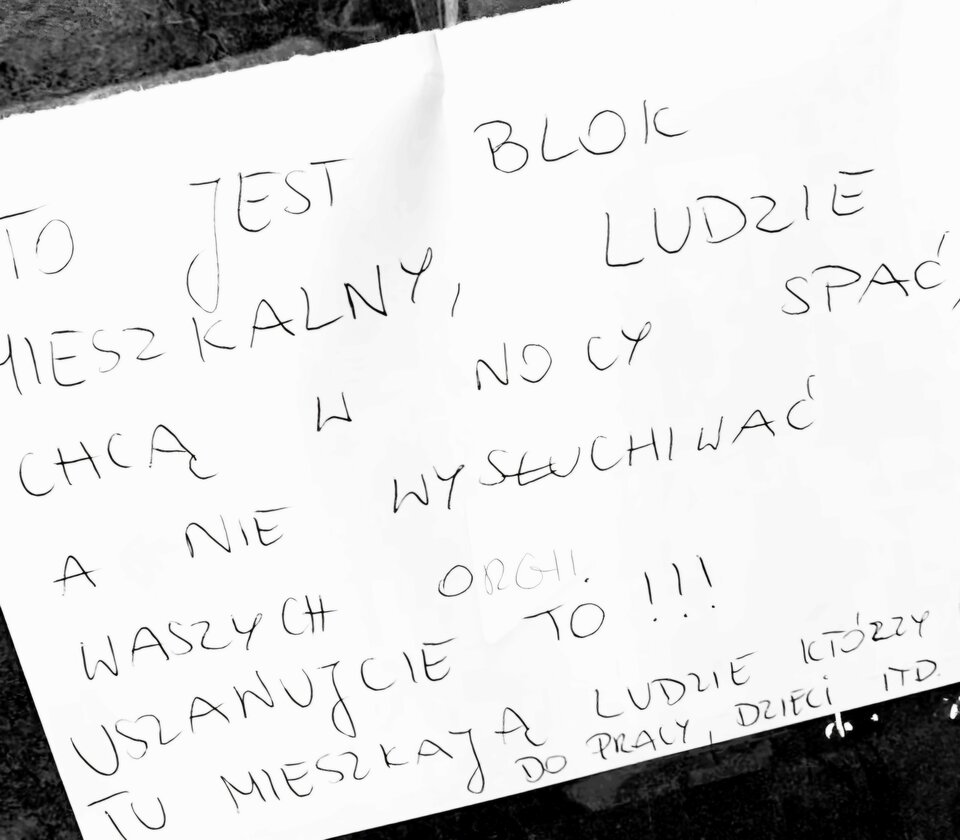 TO JEST BLOK
MIESZKALNY, LUDZIE
CHCĄ W NOCY SPAĆ,
A NIE WYSŁUCHIWAĆ
WASZYCH ORGII.
USZANUJCIE TO !!!
TU MIESZKAJĄ LUDZIE KTÓRZY
DO PRACY, DZIECI ITD.